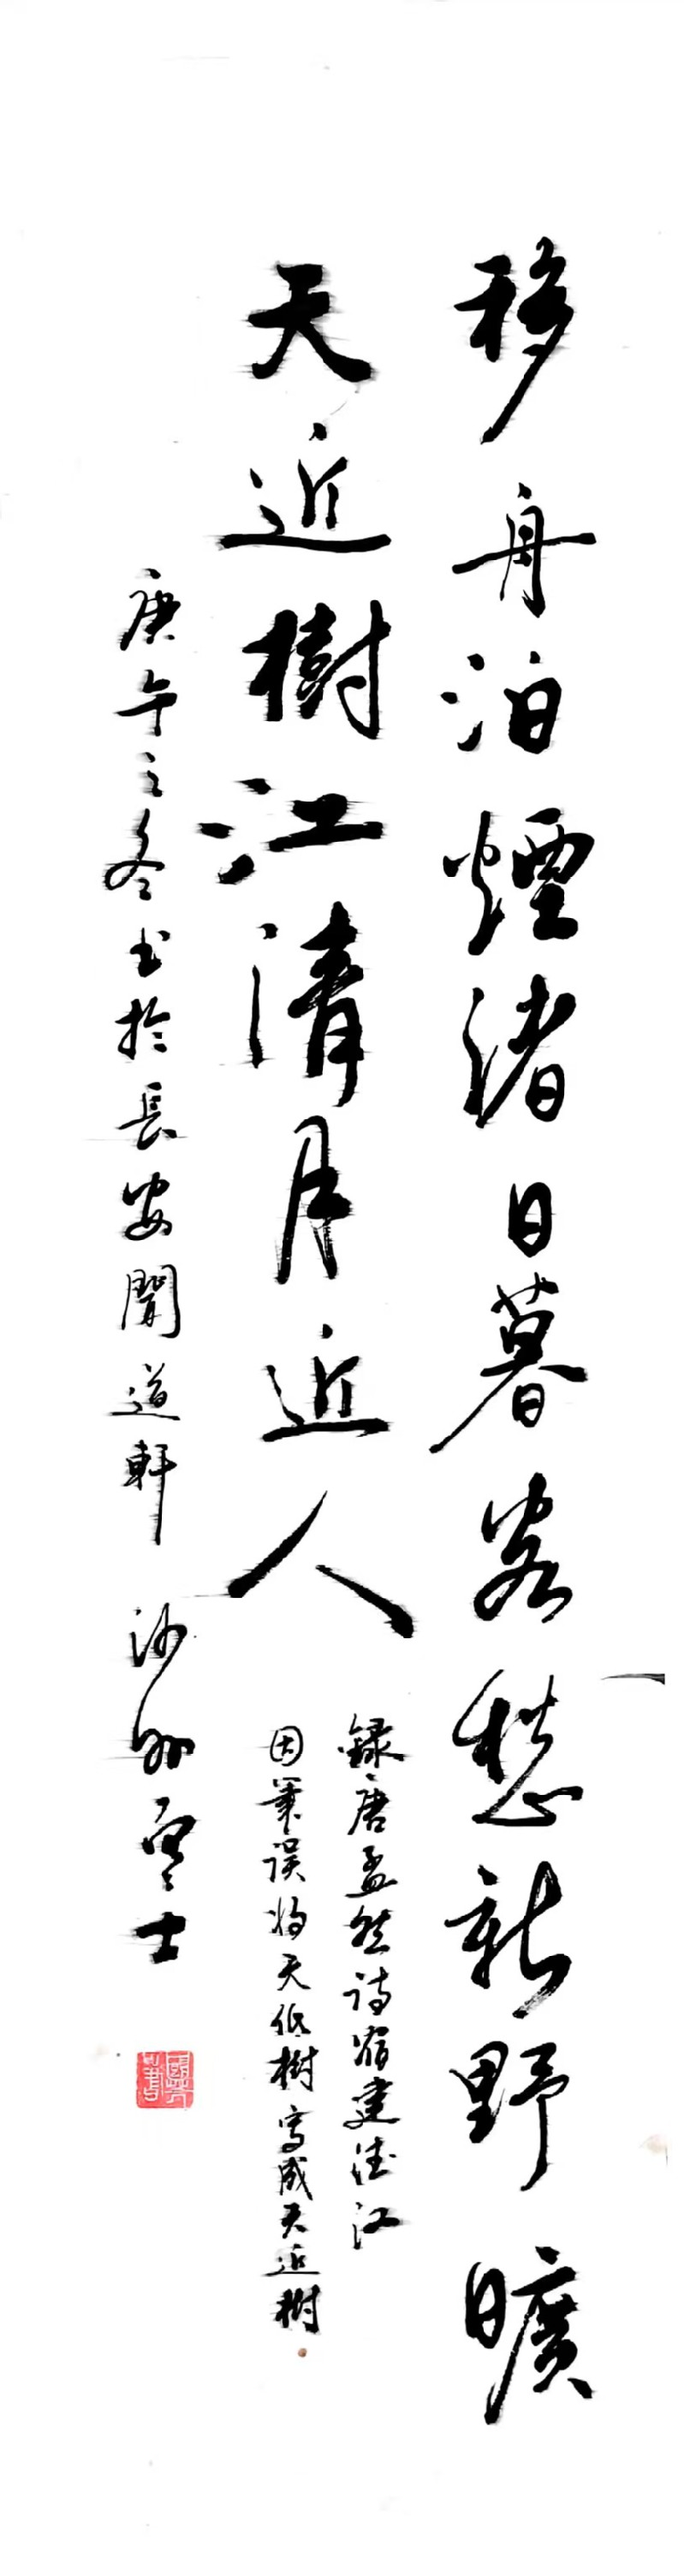 移舟泊煙渚日暮客愁新野曠
天近樹江清月近人
録唐孟然诗宿建德江
因筆误将天低樹寫成天近樹
庚午之冬书於長安聞道軒